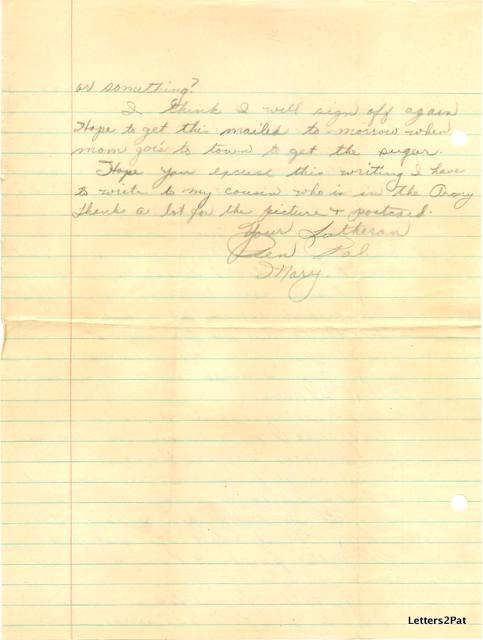 or something?
I think I will sign off again
Hope to get this mailed to-morrow when
mom goes to town to get the sugar.
Hope you excuse this writing I have
to write to my cousin who is in the Army
Thanks a lot for the picture & postcard.
Your Lutheran
Pen Pal.
Mary.
Letters2Pat